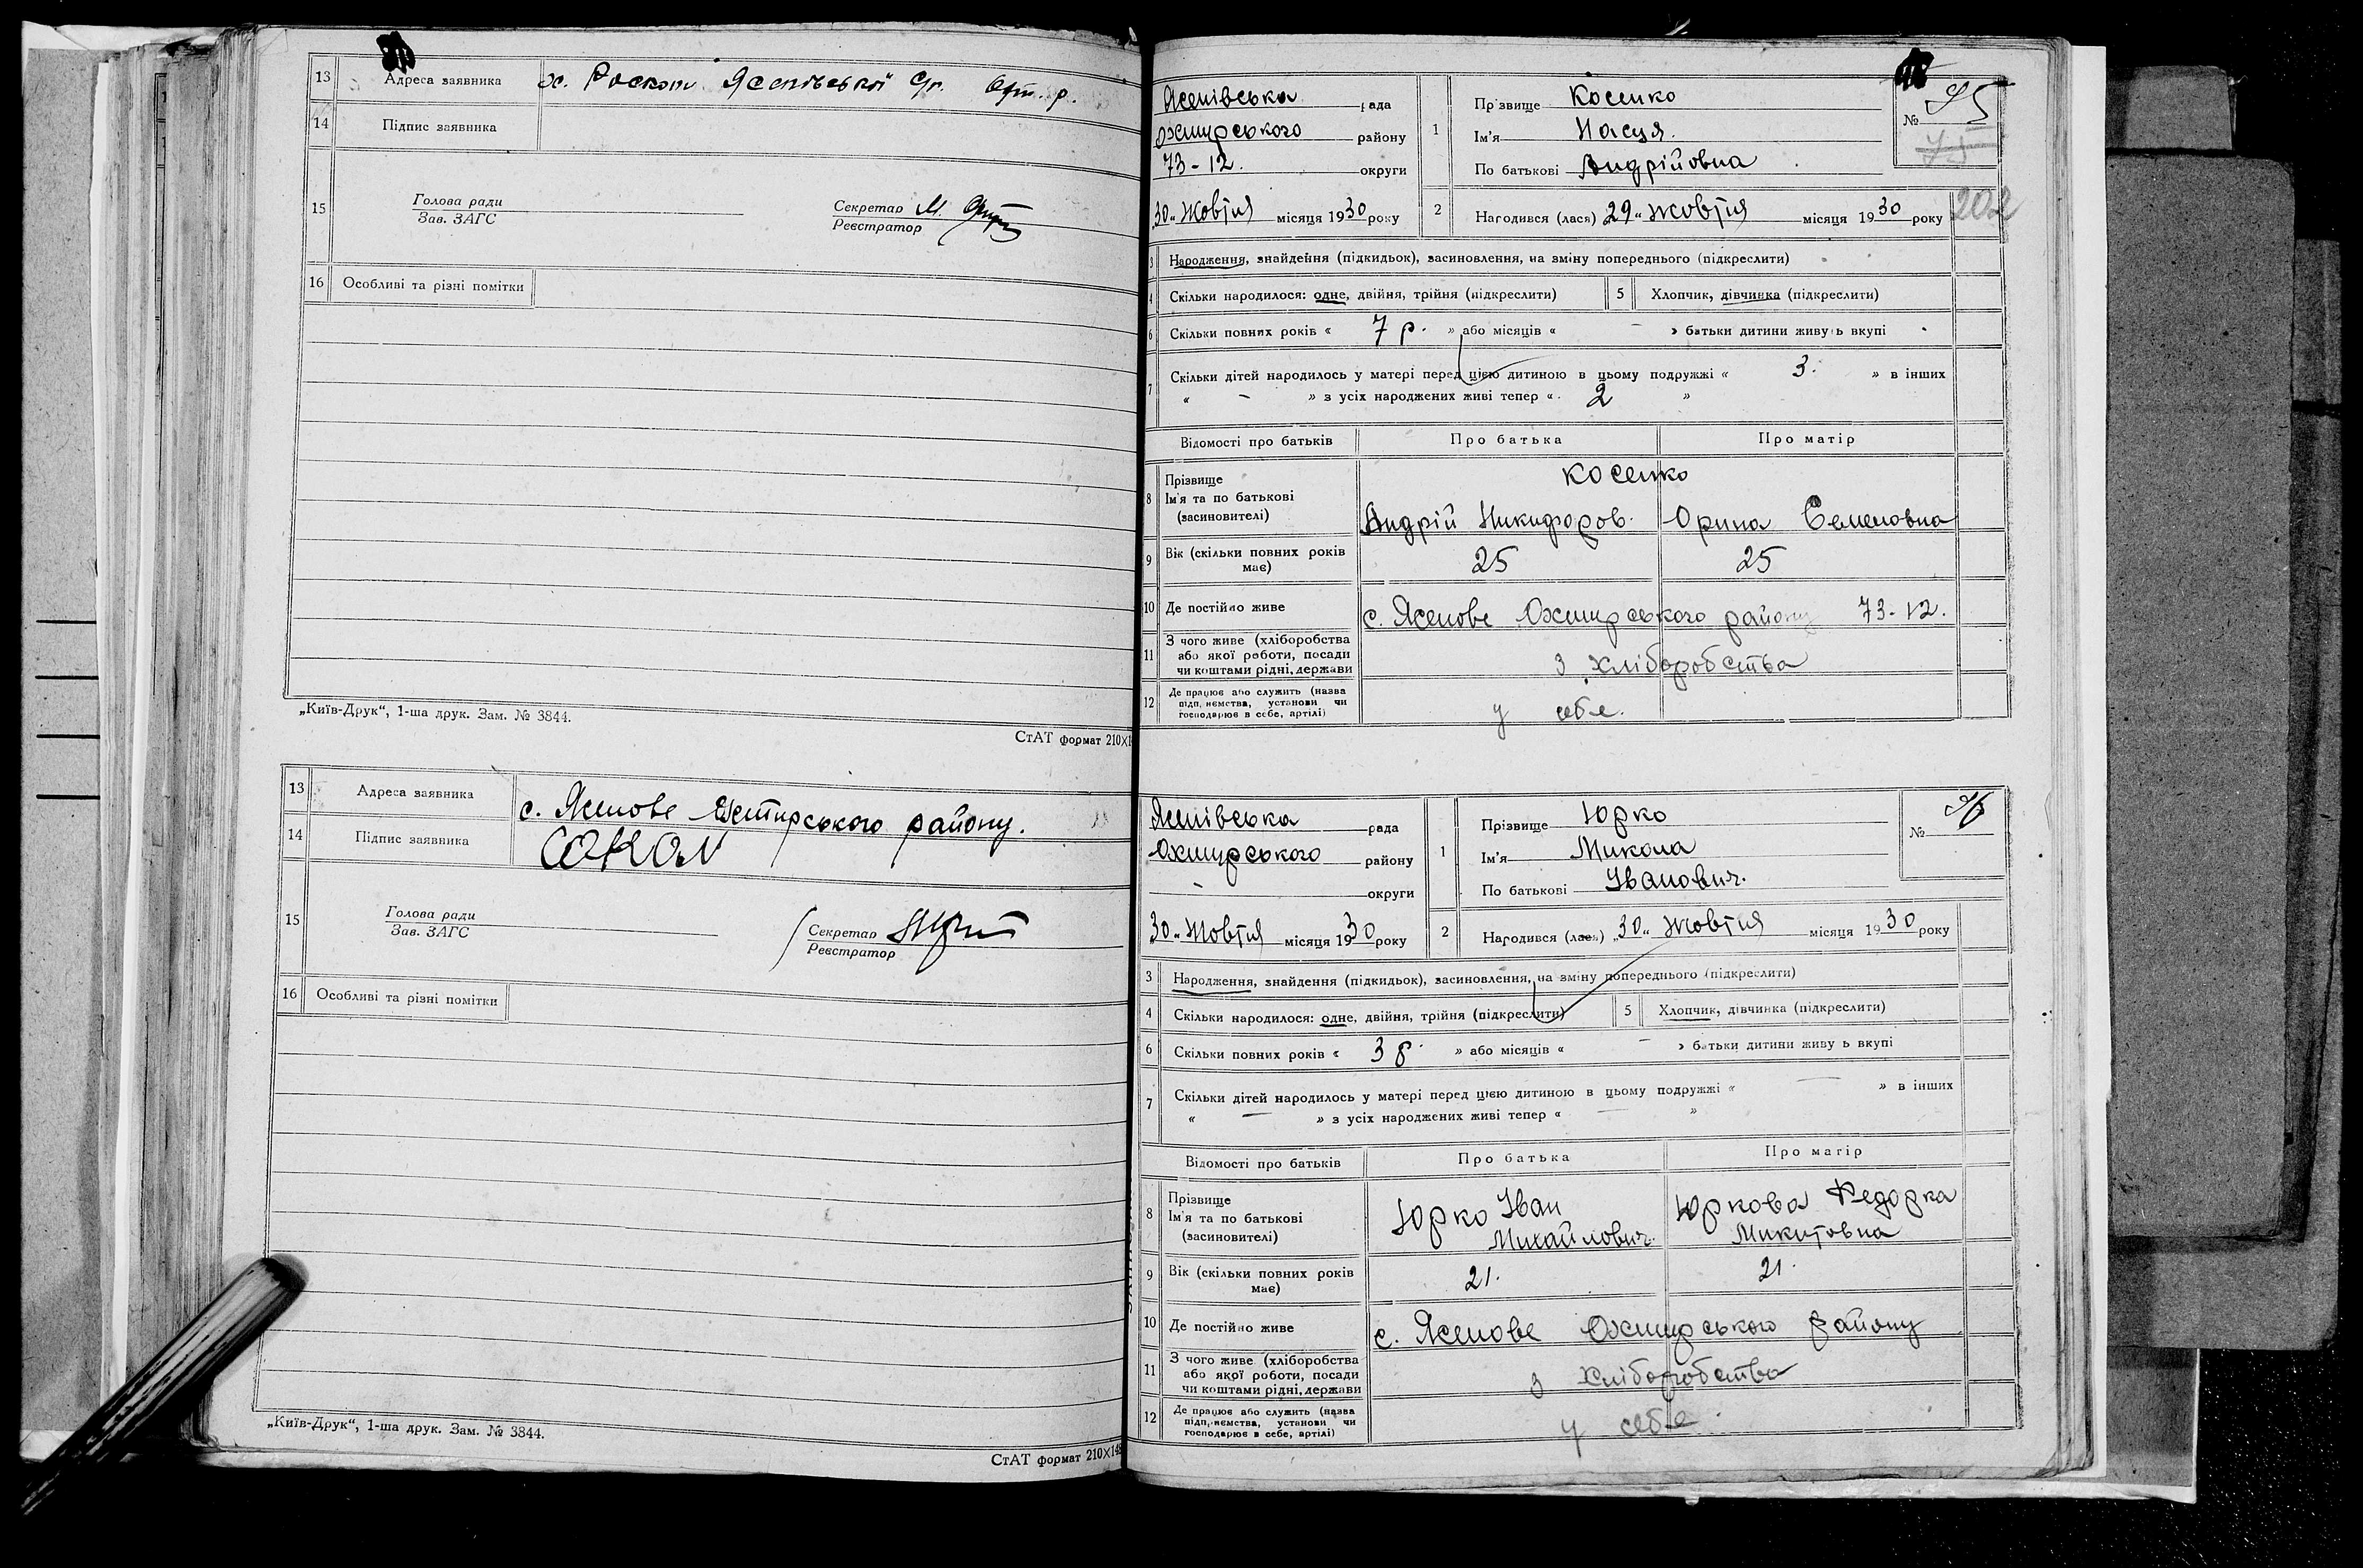 13 Адреса заявника х. Роскоти Ясенівської С/р. Охт. р.
14 Підпис заявника
15 Голова ради
Зав. ЗАГС
Секретар М.
Реєстратор
16 Особливі та різні помітки
„Київ-Друк“, 1-ша друк. Зам. № 3844.
СтАТ формат 210×1
13 Адреса заявника с. Ясенове Охтирського району.
14 Підпис заявника
15 Голова ради
Зав. ЗАГС
Секретар
Реєстратор
16 Особливі та різні помітки
„Київ-Друк“, 1-ша друк. Зам. № 3844.
СтАТ формат 210×148
Ясенівська рада
Охтирського району
73-12. округи
30 „ Жовтня місяця 1930 року
1 Прізвище Косенко
Ім'я Настя.
По батькові Андрійовна
№ 95
75
2 Народився (лася) 29 „ Жовтня місяця 1930 року
202
3 Народження, знайдення (підкидьок), засиновлення, на зміну попереднього (підкреслити)
4 Скільки народилося: одне, двійня, трійня (підкреслити) 5 Хлопчик, дівчинка (підкреслити)
6 Скільки повних років « 7 р. » або місяців « – » батьки дитини живуть вкупі
7 Скільки дітей народилось у матері перед цією дитиною в цьому подружжі « 3. » в інших
« – » з усіх народжених живі тепер « 2 »
Відомості про батьків Про батька Про матір
8 Прізвище
Ім'я та по батькові
(засиновителі)
Косенко
Андрій Никифоров. Орина Семеновна
9 Вік (скільки повних років має) 25 25
10 Де постійно живе с. Ясенове Охтирського району 73-12.
11 З чого живе (хліборобства
або якої роботи, посади
чи коштами рідні, держави
з хліборобства
12 Де працює або служить (назва
підприємства, установи чи
господарює в себе, артілі)
у себе.
Ясенівська рада
Охтирського району
– округи
30 „ Жовтня місяця 1930 року
1 Прізвище Юрко
Ім'я Микола
По батькові Іванович.
№ 96
2 Народився (лася) „ 30 „ Жовтня місяця 1930 року
3 Народження, знайдення (підкидьок), засиновлення, на зміну попереднього (підкреслити)
4 Скільки народилося: одне, двійня, трійня (підкреслити) 5 Хлопчик, дівчинка (підкреслити)
6 Скільки повних років « 3 р. » або місяців « – » батьки дитини живуть вкупі
7 Скільки дітей народилось у матері перед цією дитиною в цьому подружжі « – » в інших
« – » з усіх народжених живі тепер « – »
Відомості про батьків Про батька Про матір
8 Прізвище
Ім'я та по батькові
(засиновителі)
Юрко Іван
Михайлович.
Юркова Федорка
Микитовна
9 Вік (скільки повних років має) 21. 21.
10 Де постійно живе с. Ясенове Охтирського району
11 З чого живе (хліборобства
або якої роботи, посади
чи коштами рідні, держави
з хліборобства
12 Де працює або служить (назва
підприємства, установи чи
господарює в себе, артілі)
у себе